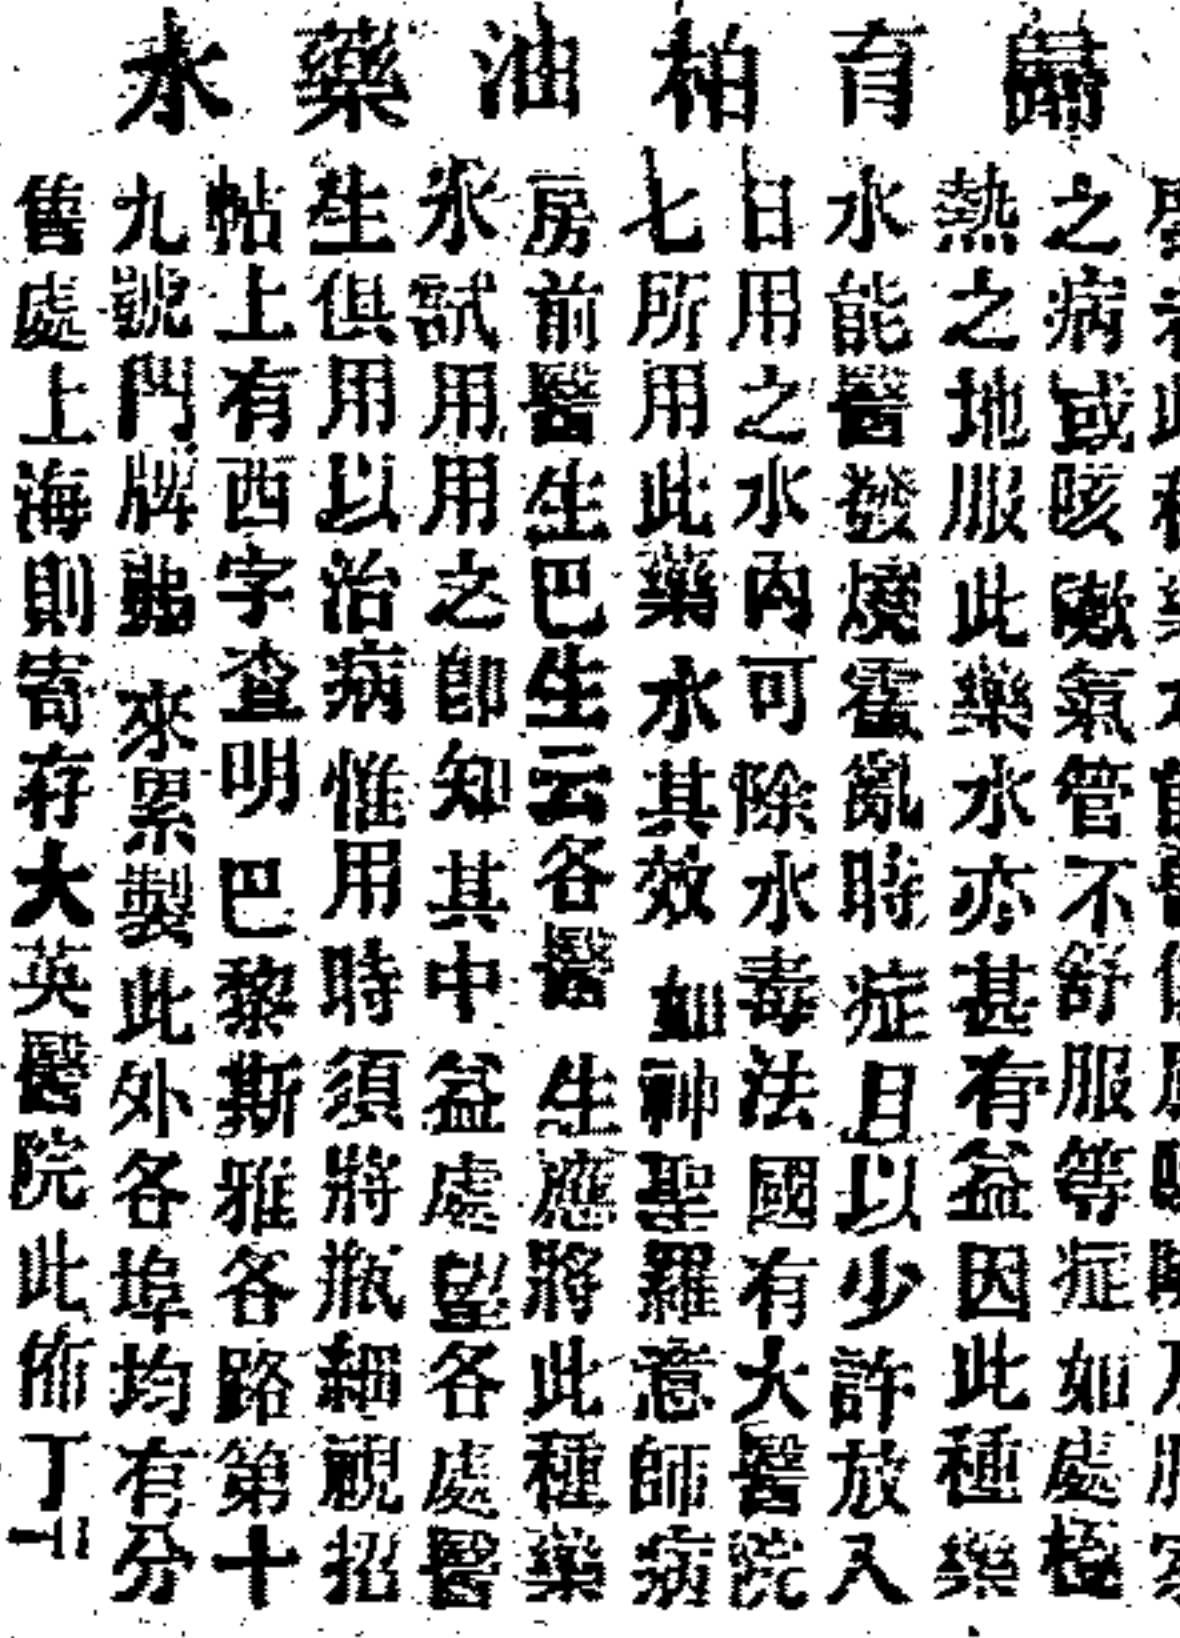 歸育柏油藥水
之病或咳嗽氣管不舒服等症如處極
熱之地服此藥水亦甚有益因此種藥
水能醫發燒霍亂時症且以少許放入
日用之水內可除水毒法國有大醫院
七所用此藥水其效如神聖羅意師病
房前醫生巴生云各醫生應將此種藥
水試用用之卽知其中益處望各處醫
生俱用以治病惟用時須將瓶細視招
帖上有西字查明巴黎斯雅各路第十
九號門牌弗來累製此外各埠均有分
售處上海則寄存大英醫院此佈